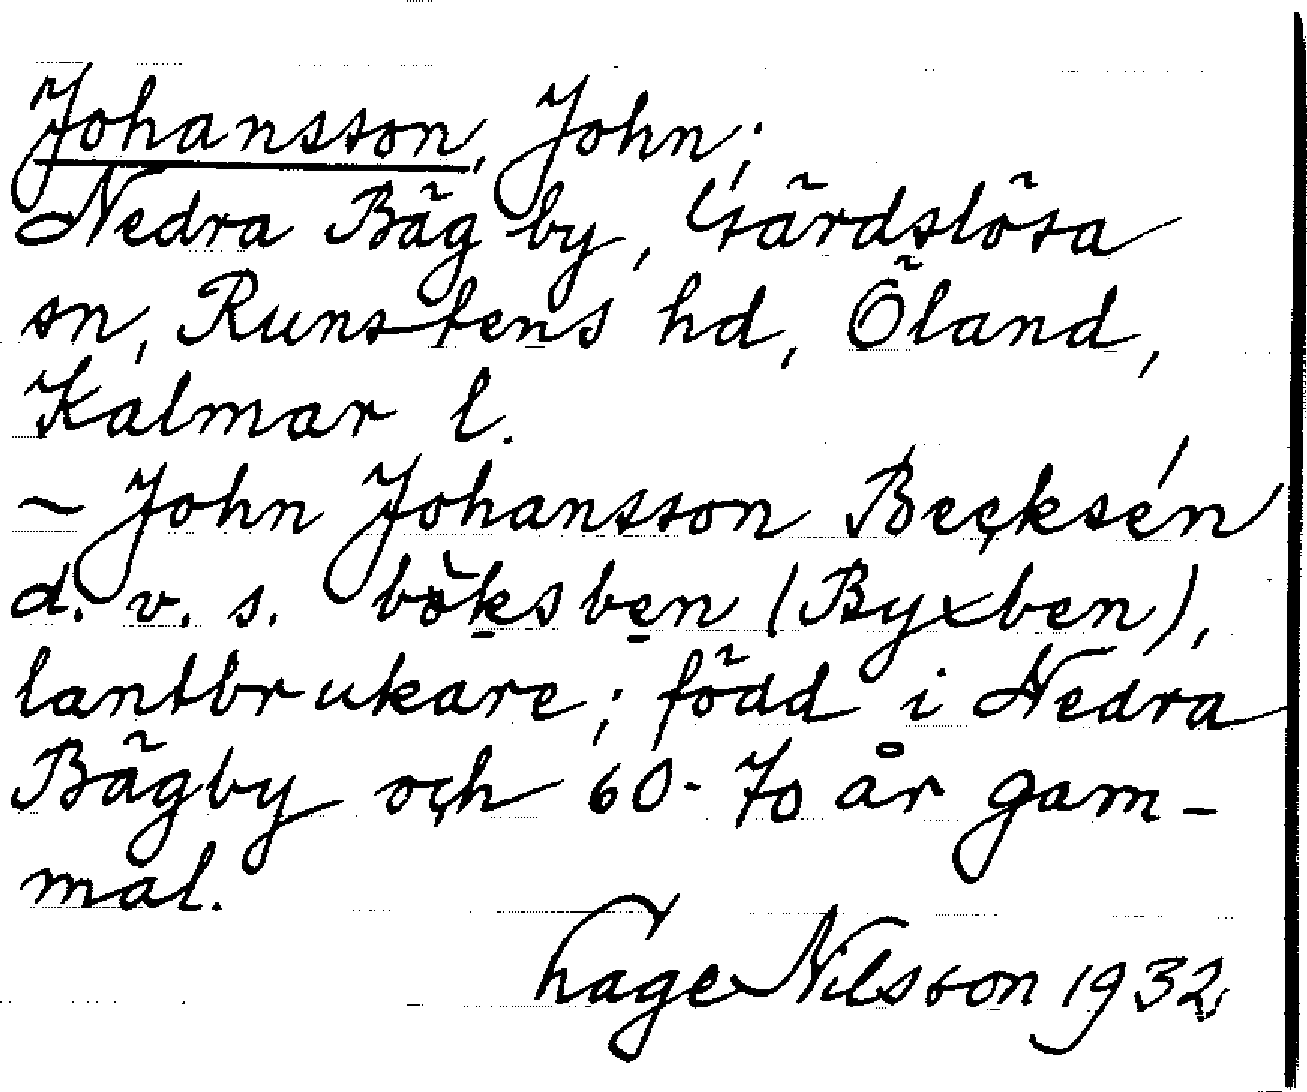 Johansson, John;
Nedra Bägby, Gärdslösa
sn, Runstens hd, Öland,
Kalmar l.
~ John Johansson Becksén
d. v. s. böksben (Byxben),
lantbrukare; född i Nedra
Bägby och 60-70 år gam-
mal.
Hage Nilsson 1932